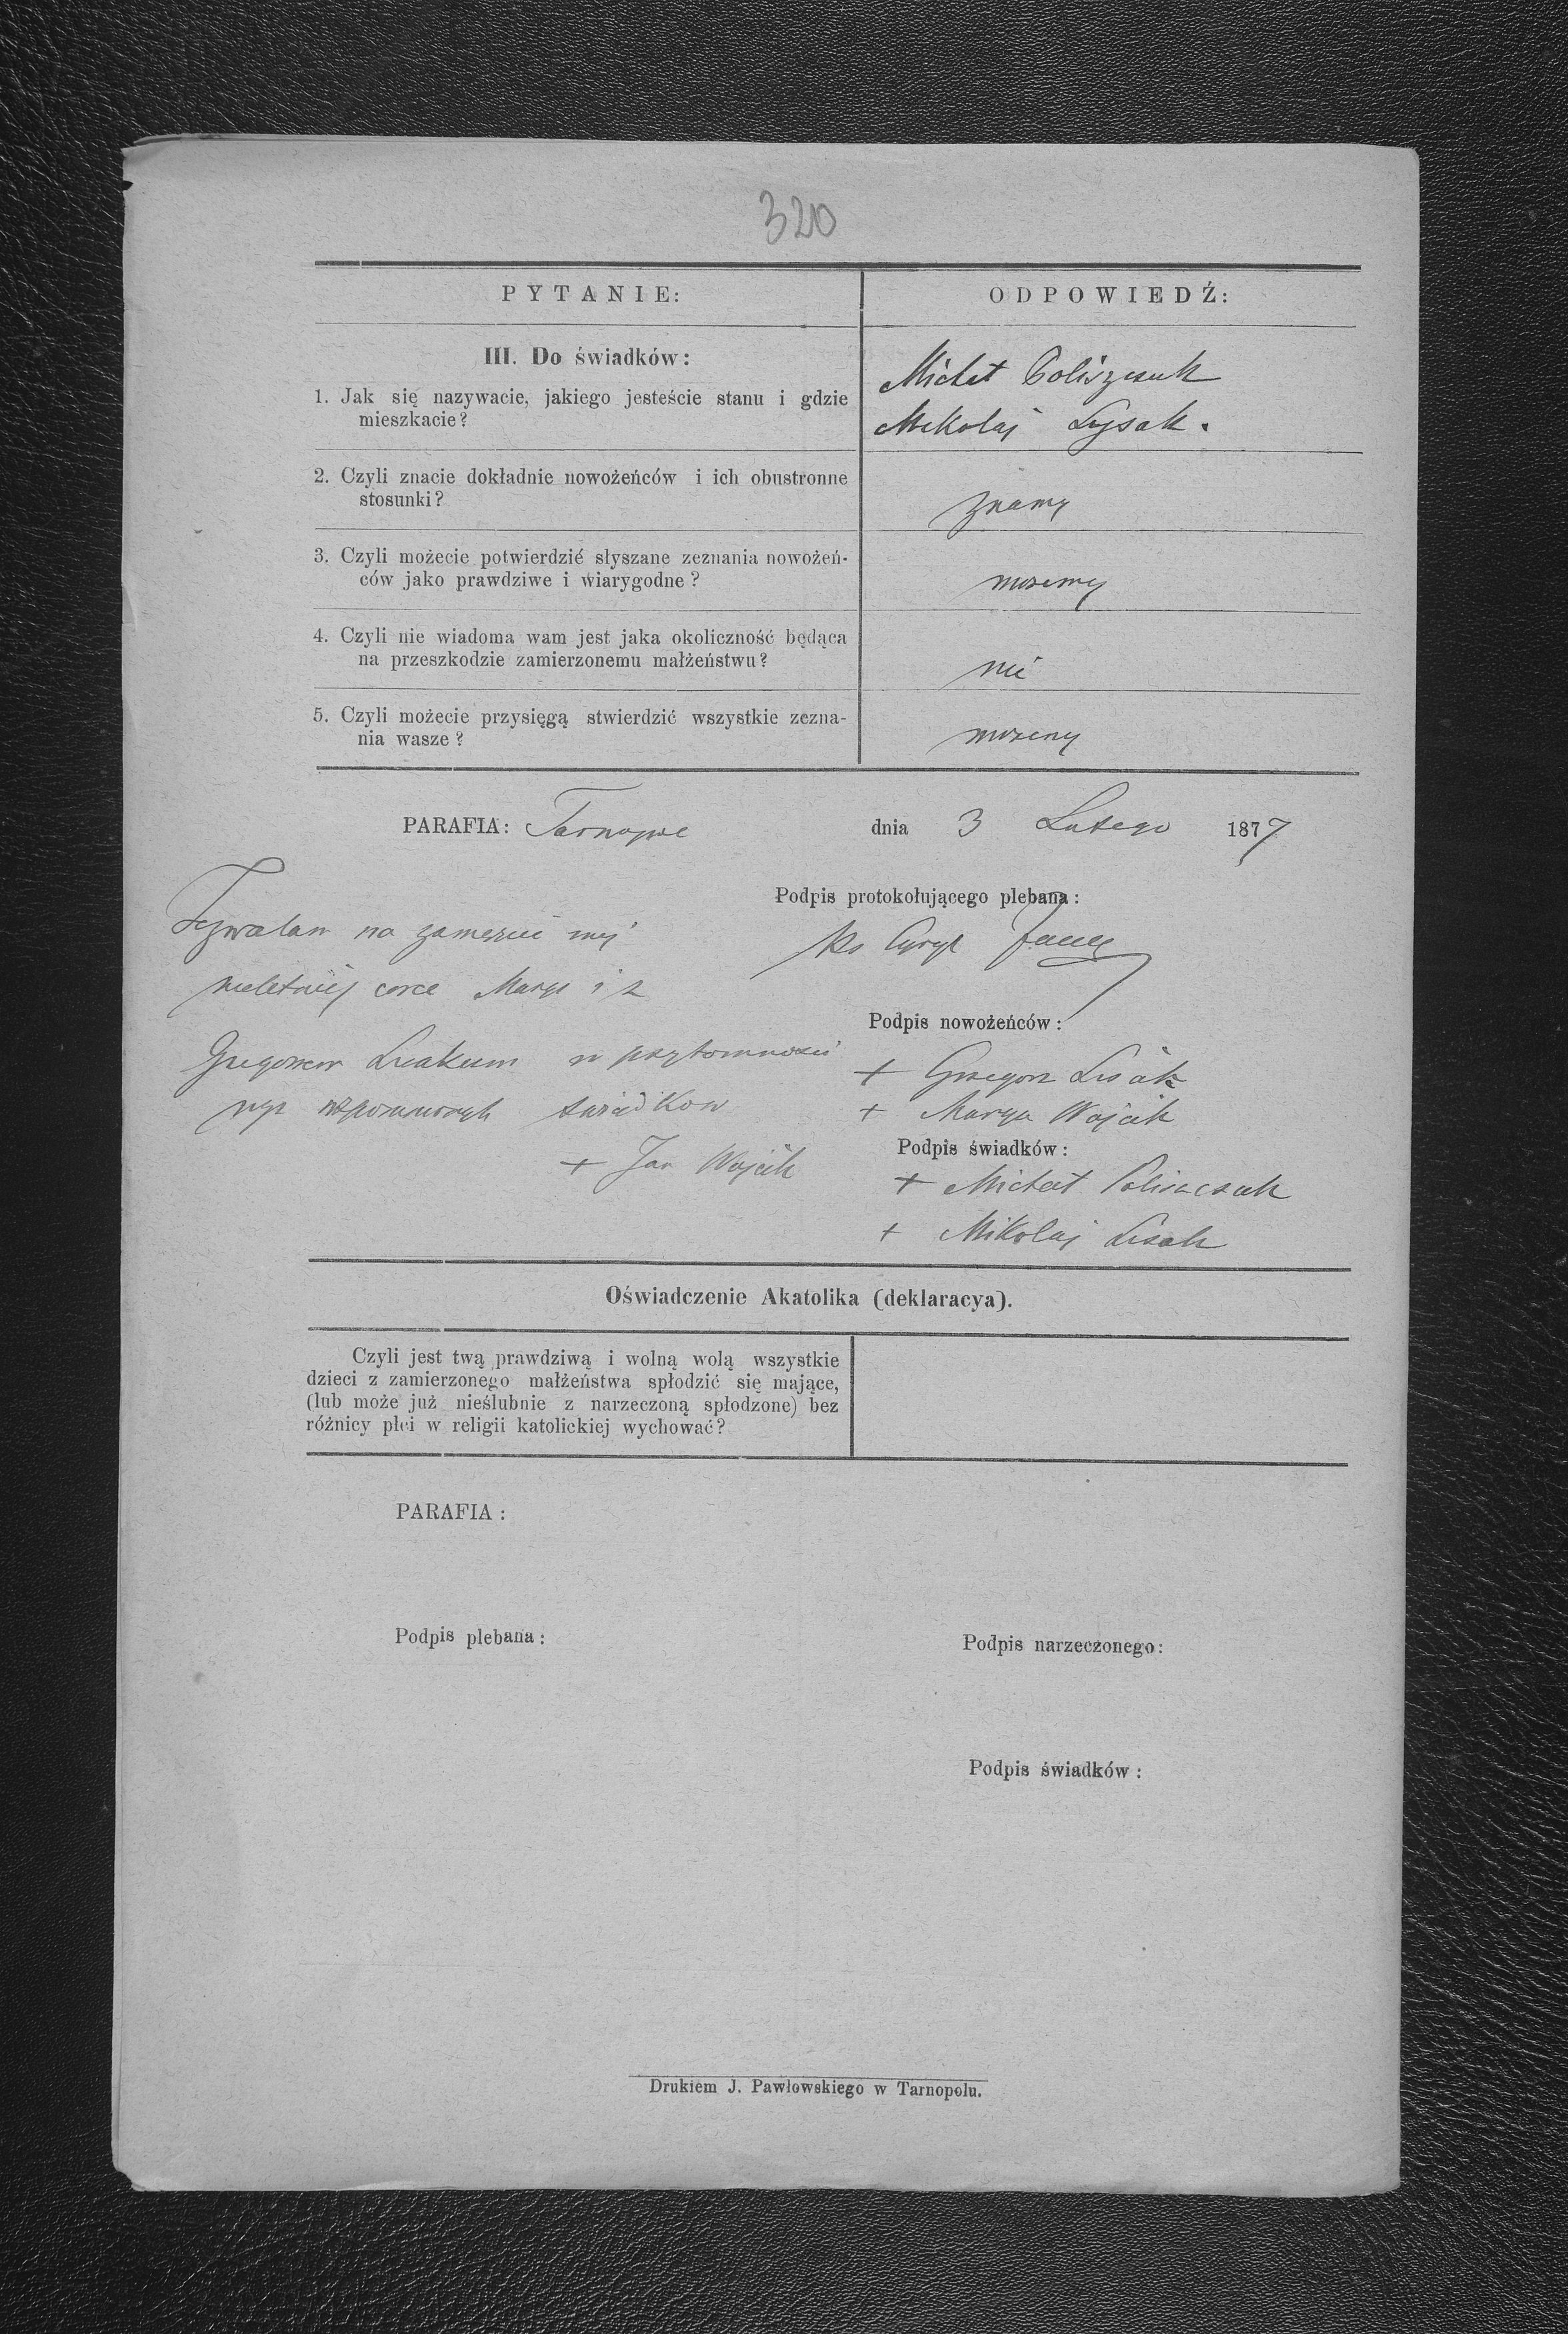 320
PYTANIE:
ODPOWIEDŹ:
III. Do świadków:
1. Jak się nazywacie, jakiego jesteście stanu i gdzie
mieszkacie?
Michał Poliszczuk
Mikołaj Łysak.
2. Czyli znacie dokładnie nowożeńców i ich obustronne
stosunki?
znamy
3. Czyli możecie potwierdzić słyszane zeznania nowożeń-
ców jako prawdziwe i wiarygodne?
mozemy
4. Czyli nie wiadoma wam jest jaka okoliczność będąca
na przeszkodzie zamierzonemu małżeństwu?
nie
5. Czyli możecie przysięgą stwierdzić wszystkie zezna-
nia wasze?
mozemy
PARAFIA:
dnia 3 Lutego 1877
Podpis protokołującego plebana:
Ks Cyryl
na zamęzcie mej
nieletniej corce Maryi z
w przytomnosci
swiadkow
+ Jan Wojcik
Podpis nowożeńców:
+ Grzegorz Lisak
+ Marya Wojcik
Podpis świadków:
+ Michał Poliszczuk
+ Mikołaj Lisak
Oświadczenie Akatolika (deklaracya).
Czyli jest twą prawdziwą i wolną wolą wszystkie
dzieci z zamierzonego małżeństwa spłodzić się mające,
(lub może już nieślubnie z narzeczoną spłodzone) bez
różnicy płci w religii katolickiej wychować?
PARAFIA:
Podpis plebana:
Podpis narzeczonego:
Podpis świadków:
Drukiem J. Pawłowskiego w Tarnopolu.